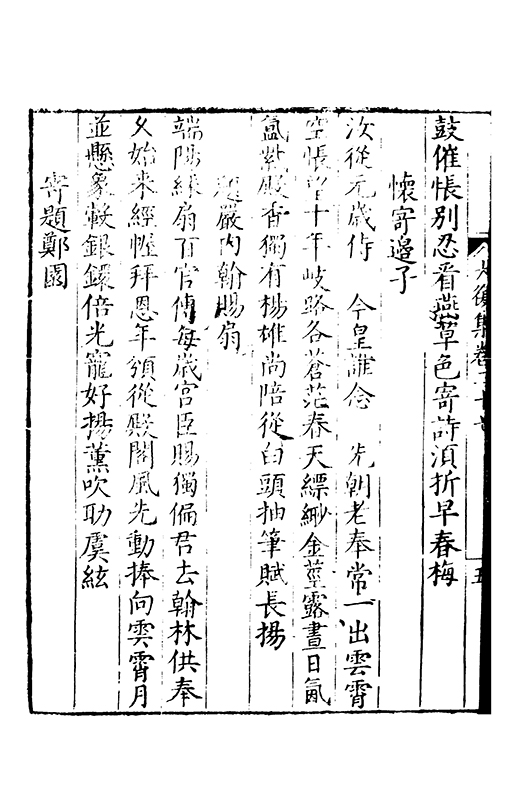 大復集卷二十七
五
鼓催悵別忍看燕草色寄詩須折早春梅
懷寄邊子
汝從元歲侍 今皇誰念 先朝老奉常一出雲霄
空悵望十年岐路各蒼茫春天縹緲金莖露晝日氤
氳紫殿香獨有楊雄尚陪從白頭抽筆賦長楊
題嚴內翰賜扇
端陽綵扇百官傳每歲宮臣賜獨偏君去翰林供奉
久始來經幄拜恩年領從殿閣風先動捧向雲霄月
並懸象較銀鐶倍光寵好揚薰吹助虞絃
寄題鄭園